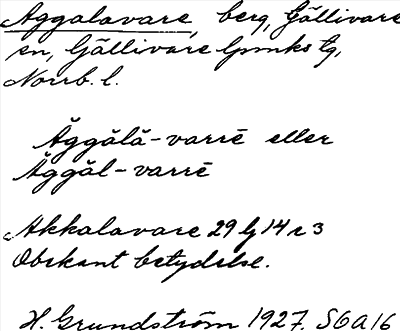 Aggalavare, berg, Gällivare
sn, Gällivare lpmks tg,
Norrb. l.
Ăggălă-varrē eller
Ăggăl-varrē
Akkalavare 29 G 14 e 3
Obekant betydelse.
H. Grundström 1927. SOA 16